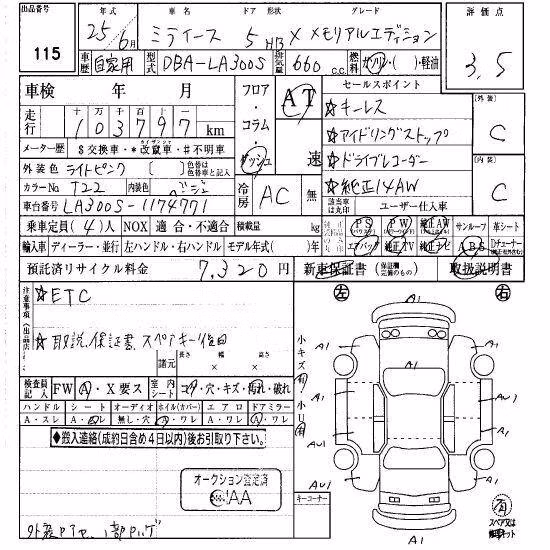 出品番号 年式 車名 ドア 形状 グレード 評価点
115 25年6月 ミライース 5 HB X メモリアルエディション 3.5
車歴 自家用 型式 DBA-LA300S 排気量 660 c.c. 燃料 ガソリン・( )・軽油
車検 年 月 フロア・コラム・ダッシュ AT 速 セールスポイント
☆キーレス 外装 C
走行 十万千百十一 103797 km ☆アイドリングストップ
メーター歴 $交換車・*改竄車・#不明車 ☆ドライブレコーダー
外装色 ライトピンク [ ] 色替は色替車と記入 ☆純正14AW 内装 C
カラーNo T22 内装色 ベージュ 冷房 AC 無 該当車は丸印 ユーザー仕入車
車台番号 LA300S-1174771
乗車定員 (4)人 NOX 適合・不適合 積載量 kg PS PW 純正AW サンルーフ 革シート
輸入車 ディーラー・並行 左ハンドル・右ハンドル モデル年式( )年 エアバッグ 純正TV 純正ナビ ABS Dチューナー
預託済リサイクル料金 7,320円 新車保証書 (保証欄完備のもの) 取扱説明書
注意事項 (出品店) ☆ETC
☆取説、保証書、スペアキー後日
諸元 長さ 幅 高さ × ×
左 右
小キズ有 小U有
検査員記入 FW A・X要ス 室内シート コゲ・穴・キズ・汚れ・破れ
ハンドル シート オーディオ ホイル(カバー) エアロ ドアミラー
A・スレ A・ワレ 無し・穴 A・ワレ A・ワレ
◆搬入遠絡(成約日含め4日以内)後お引取り下さい。
オークション査定済
AA
キーコーナー
A1 A1 A1 A1 AU1 A1 AU1 A1 AU1 A1 A1
スペア又は修理キット